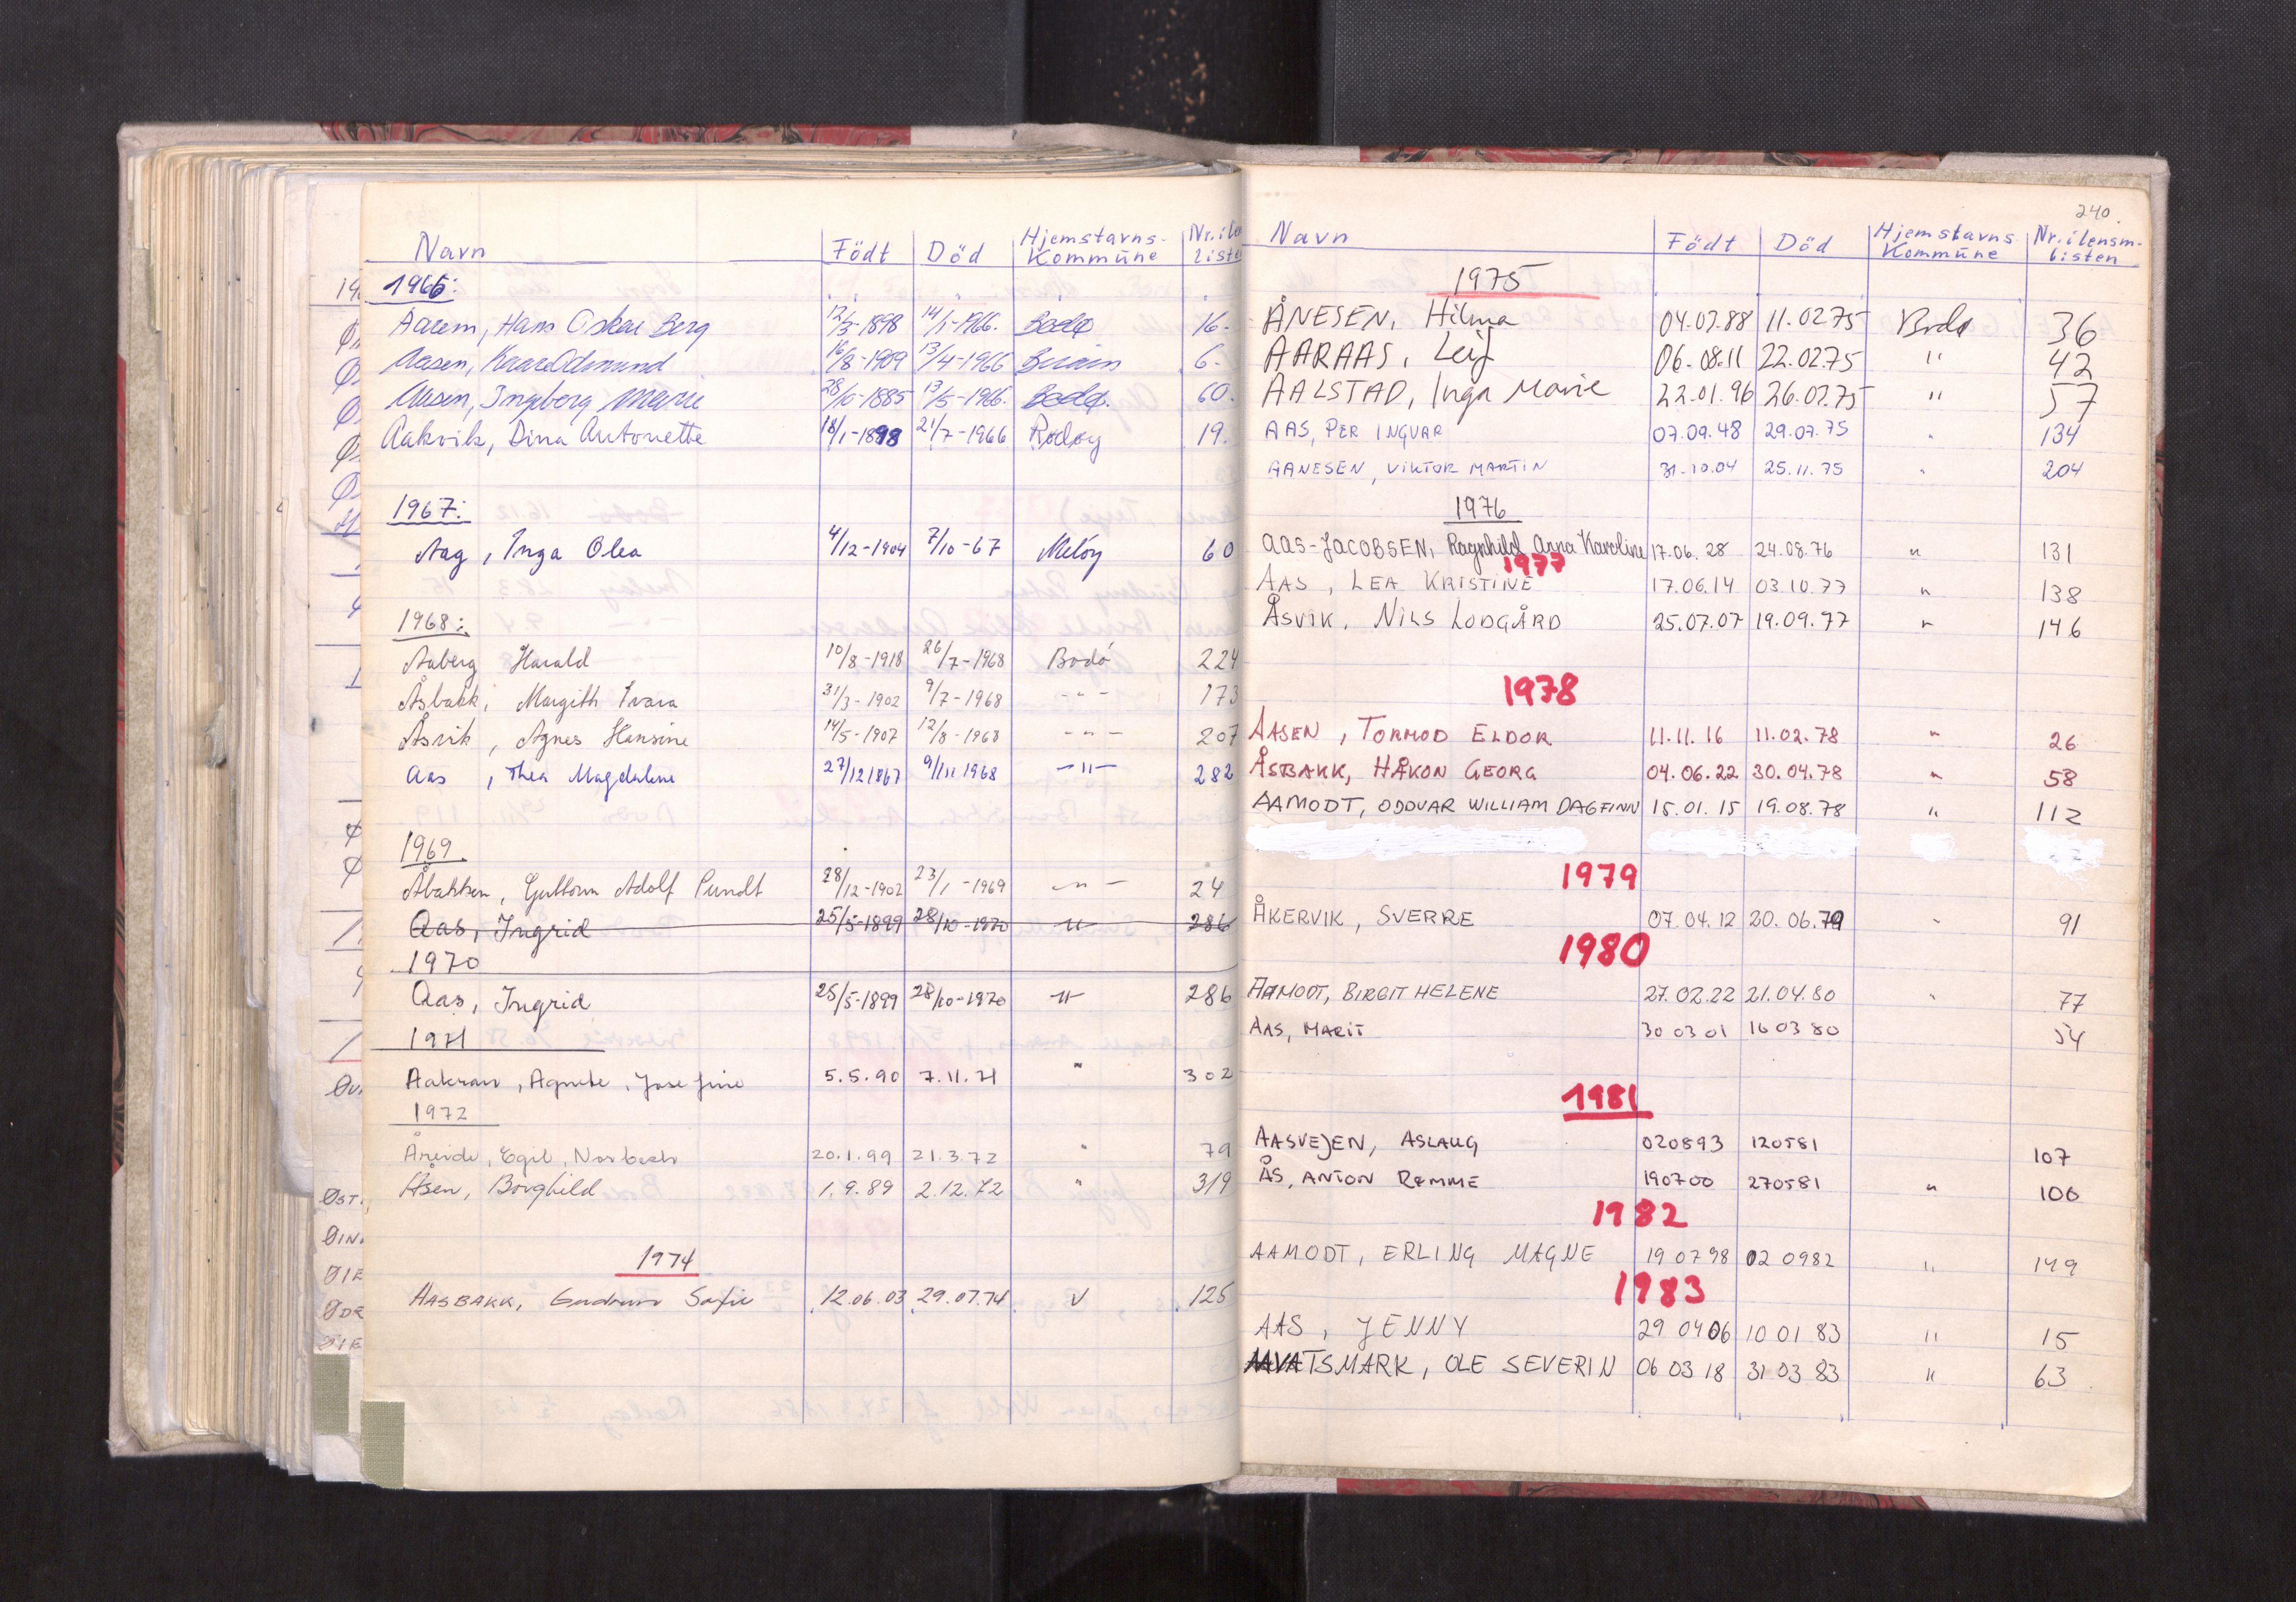 Navn Födt Död Hjemstavns- Kommune Nr. i le liste
1966:
Aarem, Hans Oskar Berg 12/3-1898 14/1-1966. Bodø 16.
Aasen, Kaare Odmund 16/8-1909 13/4-1966 6.
Aasen, Ingeborg Marie 28/10-1885 13/5-1966. Bodø. 60.
Aakvik, Dina Antonette 18/1-1898 21/7-1966 Rødøy 19.
1967:
Aag, Inga Olea 4/12-1904 7/10-67 Meløy 60
1968:
Aaberg Harald 10/8-1918 26/7-1968 Bodó 224
Åsbakk, Margith Ivara 31/3-1902 9/7-1968 -"- 173
Åsvik, Agnes Hansine 14/5-1907 12/8-1968 -"- 207
Aas, Thea Magdalene 27/12 1867 9/11 1968 -"- 282
1969
Åbakken, Guttorm Adolf Pundt 28/12-1902 23/1-1969 -"- 24
Aas, Ingrid 25/5-1899 28/10-1970 -"- 286
1970
Aas, Ingrid 25/5-1899 28/10-1970 -"- 286
1971
Aakran, Agnete, Josefine 5.5.90 7.11.71 " 302
1972
Egil, 20.1.99 21.3.72 " 79
Åsen, Borghild 1.9.89 2.12.72 " 319
1974
AASBAKK, Gudrun Sofie 12.06.03 29.07.74 V 125
240.
Navn Födt Död Hjemstavns Kommune Nr. i lensm- listen
1975
ÅNESEN, Hilma 04.07.88 11.02.75 Bodø 36
AARAAS, Leif 06.08.11 22.02.75 " 42
AALSTAD, Inga Marie 22.01.96 26.02.75 " 57
AAS, PER INGVAR 07.09.48 29.07.75 " 134
AANESEN, VIKTOR MARTIN 31.10.04 25.11.75 " 204
1976
AAS-JACOBSEN, Ragnhild Anna Karoline 17.06.28 24.08.76 " 131
1977
AAS, LEA KRISTINE 17.06.14 03.10.77 " 138
ÅSVIK, NILS LODGÅRD 25.07.07 19.09.77 " 146
1978
AASEN, TORMOD ELDOR 11.11.16 11.02.78 " 26
ÅSBAKK, HÅKON GEORG 04.06.22 30.04.78 " 58
AAMODT, ODDVAR WILLIAM DAGFINN 15.01.15 19.08.78 " 112
1979
ÅKERVIK, SVERRE 07.04.12 20.06.79 " 91
1980
AAMODT, BIRGIT HELENE 27.02.22 21.04.80 " 77
AAS, MARIT 30 03 01 16 03 80 54
1981
AASVEJEN, ASLAUG 020893 120581 107
ÅS, ANTON REMME 190700 270581 " 106
1982
AAMODT, ERLING MAGNE 19 07 98 02 09 82 " 149
1983
AAS, JENNY 29 04 06 10 01 83 " 15
AAVATSMARK, OLE SEVERIN 06 03 18 31 03 83 " 63